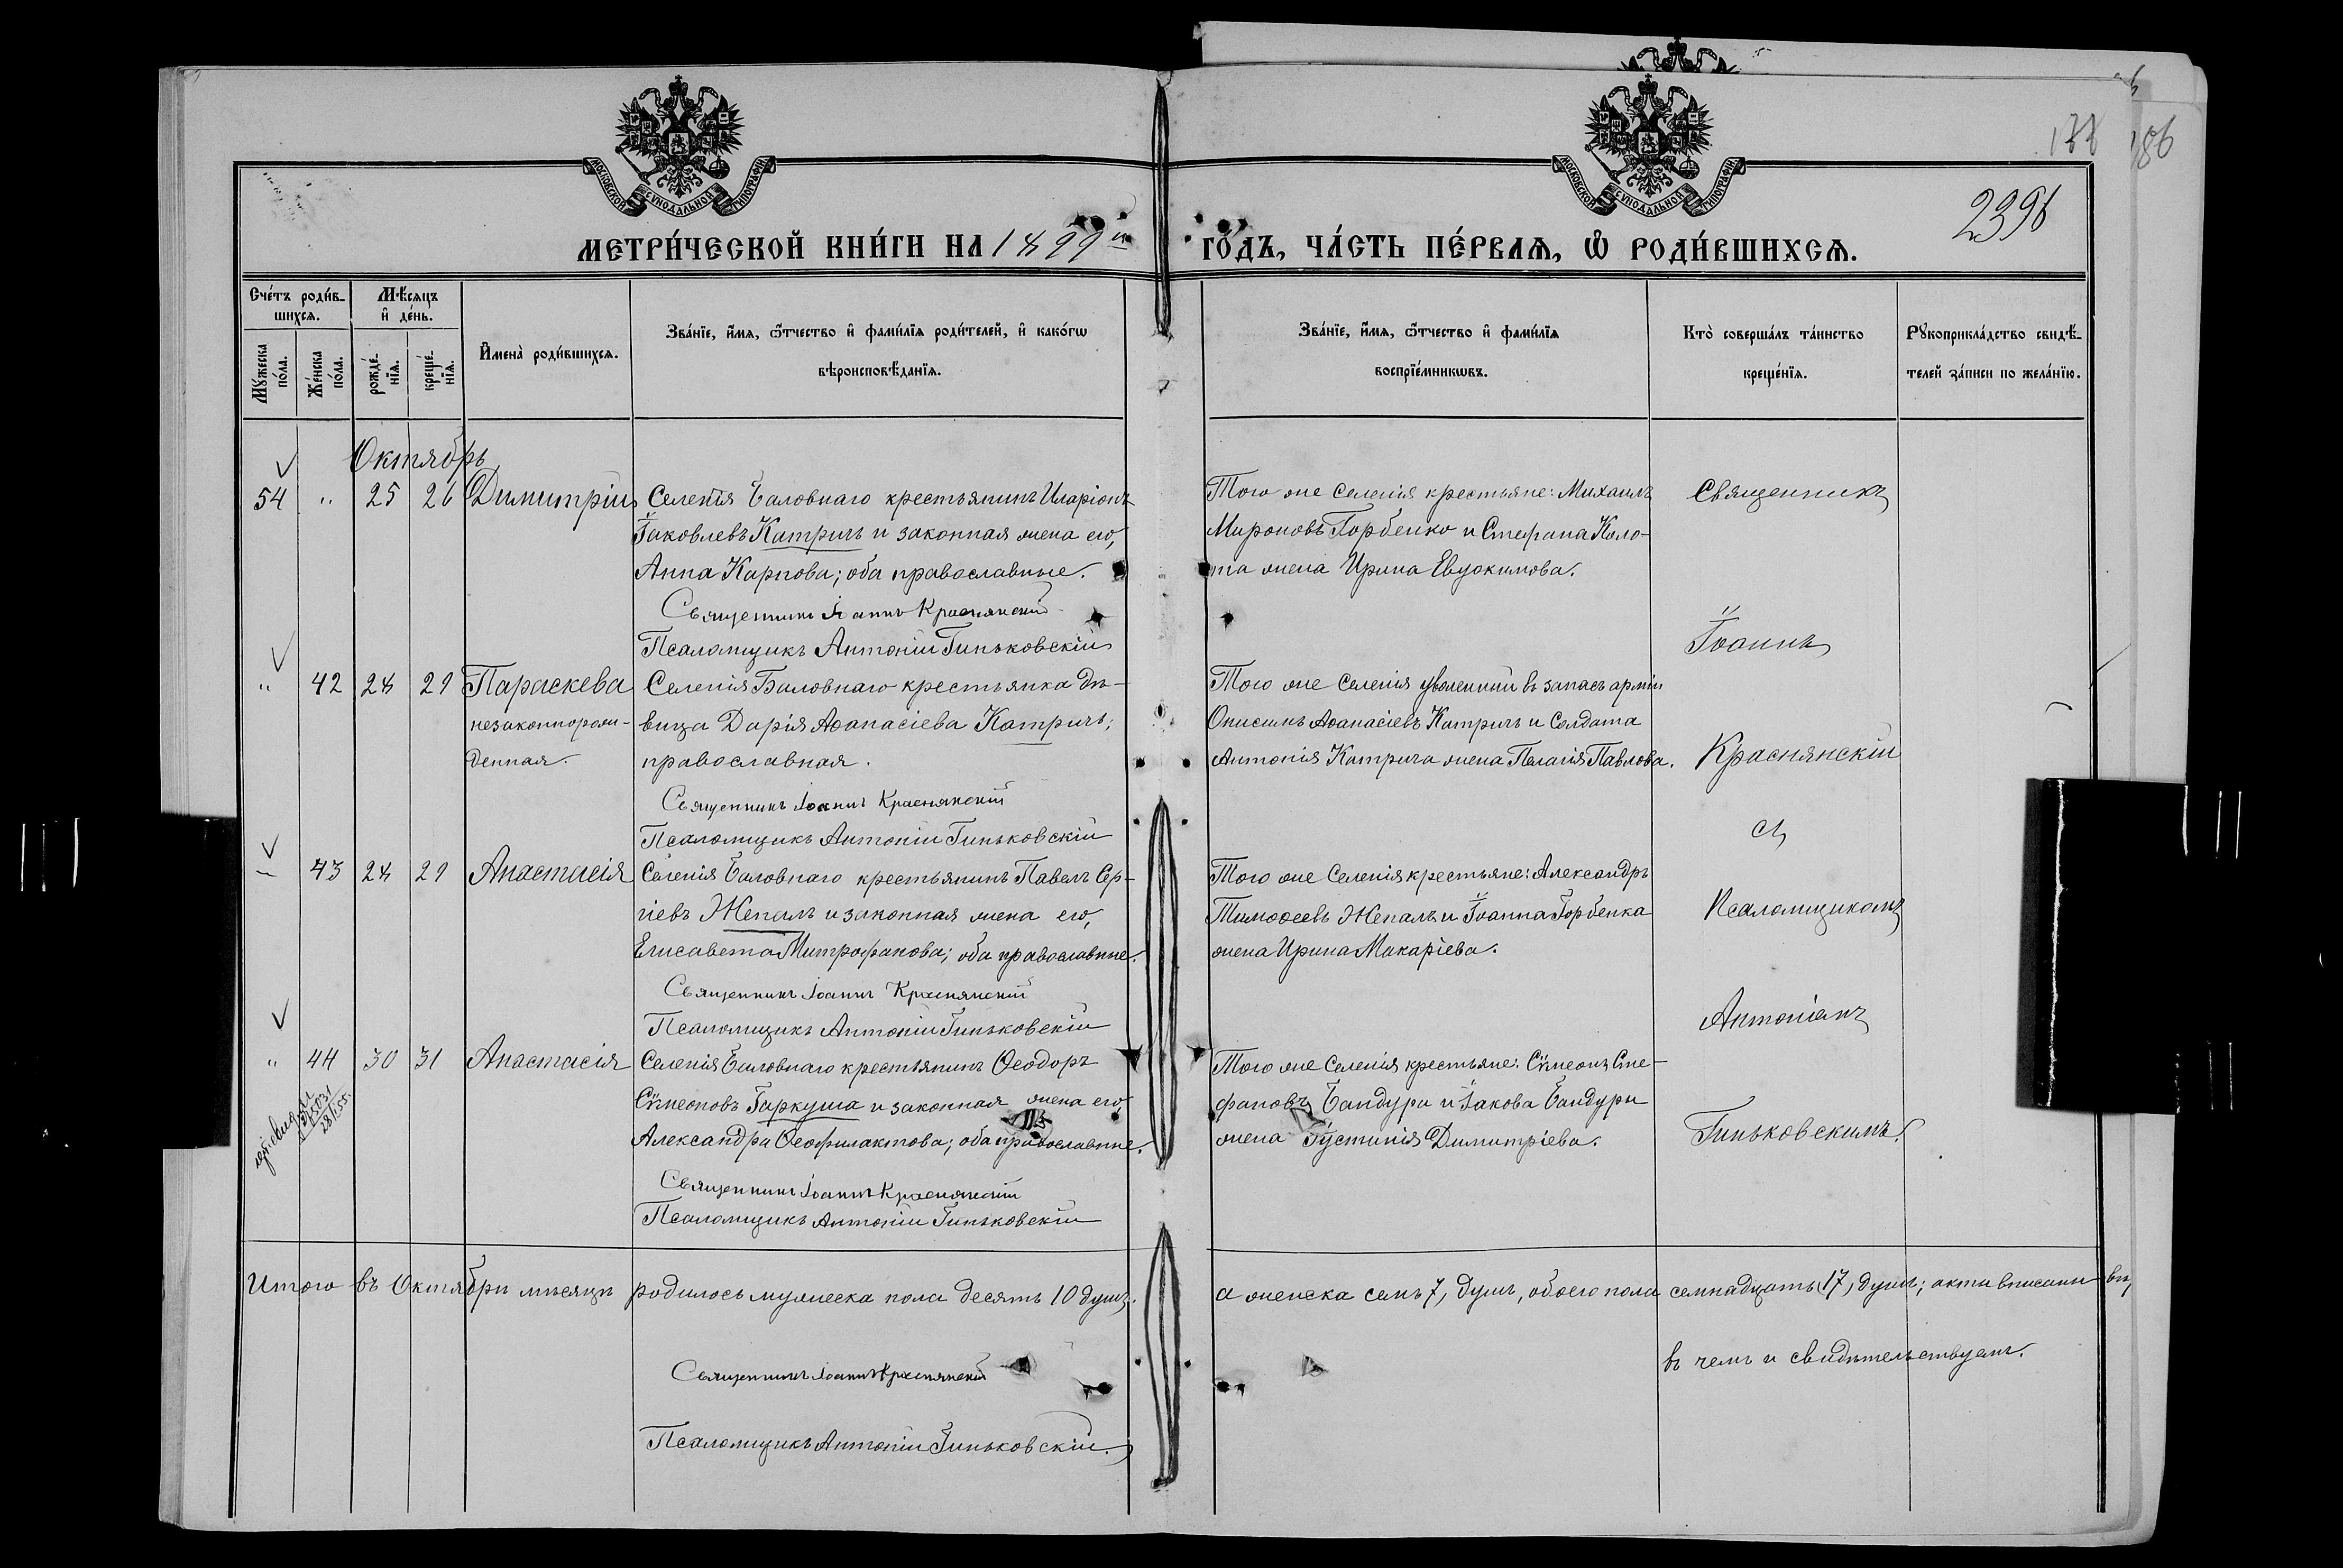 МОСКОВСКОЙ СѴНОДАЛЬНОЙ ТИПОГРАФІИ
МОСКОВСКОЙ СѴНОДАЛЬНОЙ ТИПОГРАФІИ
186
2396
МЕТРИ́ЧЕСКОЙ КНИ́ГИ НА 1899й ГО́ДЪ, ЧА́СТЬ ПЕ́РВАѦ, Ѡ҆ РОДИ́ВШИХСѦ.
Сче́тъ роди́в-
шихсѧ.
Мѣ́сѧцъ
и҆ де́нь.
Мꙋ́жеска
по́ла.
Же́нска
по́ла.
рожде́-
нїѧ.
креще́-
нїѧ.
И҆мена̀ роди́вшихсѧ.
Зва́нїе, и҆́мѧ, ѻ҆́тчество и҆ фами́лїѧ роди́телей, и҆ како́гѡ
вѣроисповѣ́данїѧ.
Зва́нїе, и҆́мѧ, ѻ҆́тчество и҆ фами́лїѧ
воспрїе́мникѡвъ.
Кто̀ соверша́лъ та́инство
креще́нїѧ.
Рꙋкоприкла́дство свидѣ́-
телей за́писи по жела́нїю.
Октябрь
54 " 25 26 Димитрій Селенія Баловнаго крестьянинъ Иларіонъ
Іаковлевъ Катричъ и законная жена его,
Анна Карпова; оба православные.
Священникъ Іоаннъ Краснянскій
Псаломщикъ Антоній Гиньковскій
Того же селенія крестьяне: Михаилъ
Мироновъ Горбенко и Стефана Коло-
та жена Ирина Евдокимова.
" 42 28 29 Параскева
незаконнорож-
денная.
Селенія Баловнаго крестьянка дѣ-
вица Дарія Аѳанасіева Катричъ;
православная.
Священникъ Іоаннъ Краснянскій
Псаломщикъ Антоній Гиньковскій
Того же селенія уволенный въ запасъ арміи
Онисимъ Аѳанасіевъ Катричъ и солдата
Антонія Катрича жена Пелагія Павлова.
" 43 28 29 Анастасія Селенія Баловнаго крестьянинъ Павелъ Сер-
гіевъ Жепалъ и законная жена его,
Елисавета Митрофанова; оба православные.
Священникъ Іоаннъ Краснянскій
Псаломщикъ Антоній Гиньковскій
Того же селенія крестьяне: Александръ
Тимоѳеевъ Жепалъ и Іоанна Горбенка
жена Ирина Макаріева.
" 44 30 31 Анастасія Селенія Баловнаго крестьянинъ Ѳеодоръ
Сѵмеоновъ Гаркуша и законная жена его,
Александра Ѳеофилактова; оба православные.
Священникъ Іоаннъ Краснянскій
Псаломщикъ Антоній Гиньковскій
Того же селенія крестьяне: Сѵмеонъ Сте-
фановъ Бандура и Іакова Бандуры
жена Іустинія Димитріева.
Священникъ
Іоаннъ
Краснянскій
съ
Псаломщикомъ
Антоніемъ
Гиньковскимъ.
Итого въ Октябрѣ мѣсяцѣ родилось мужеска пола десять 10 душъ, а женска семь 7, душъ, обоего пола семнадцать (17) душъ; акты вписаны вѣ,
въ чемъ и свидѣтельствуемъ.
Священникъ Іоаннъ Краснянскій
Псаломщикъ Антоній Гиньковскій.